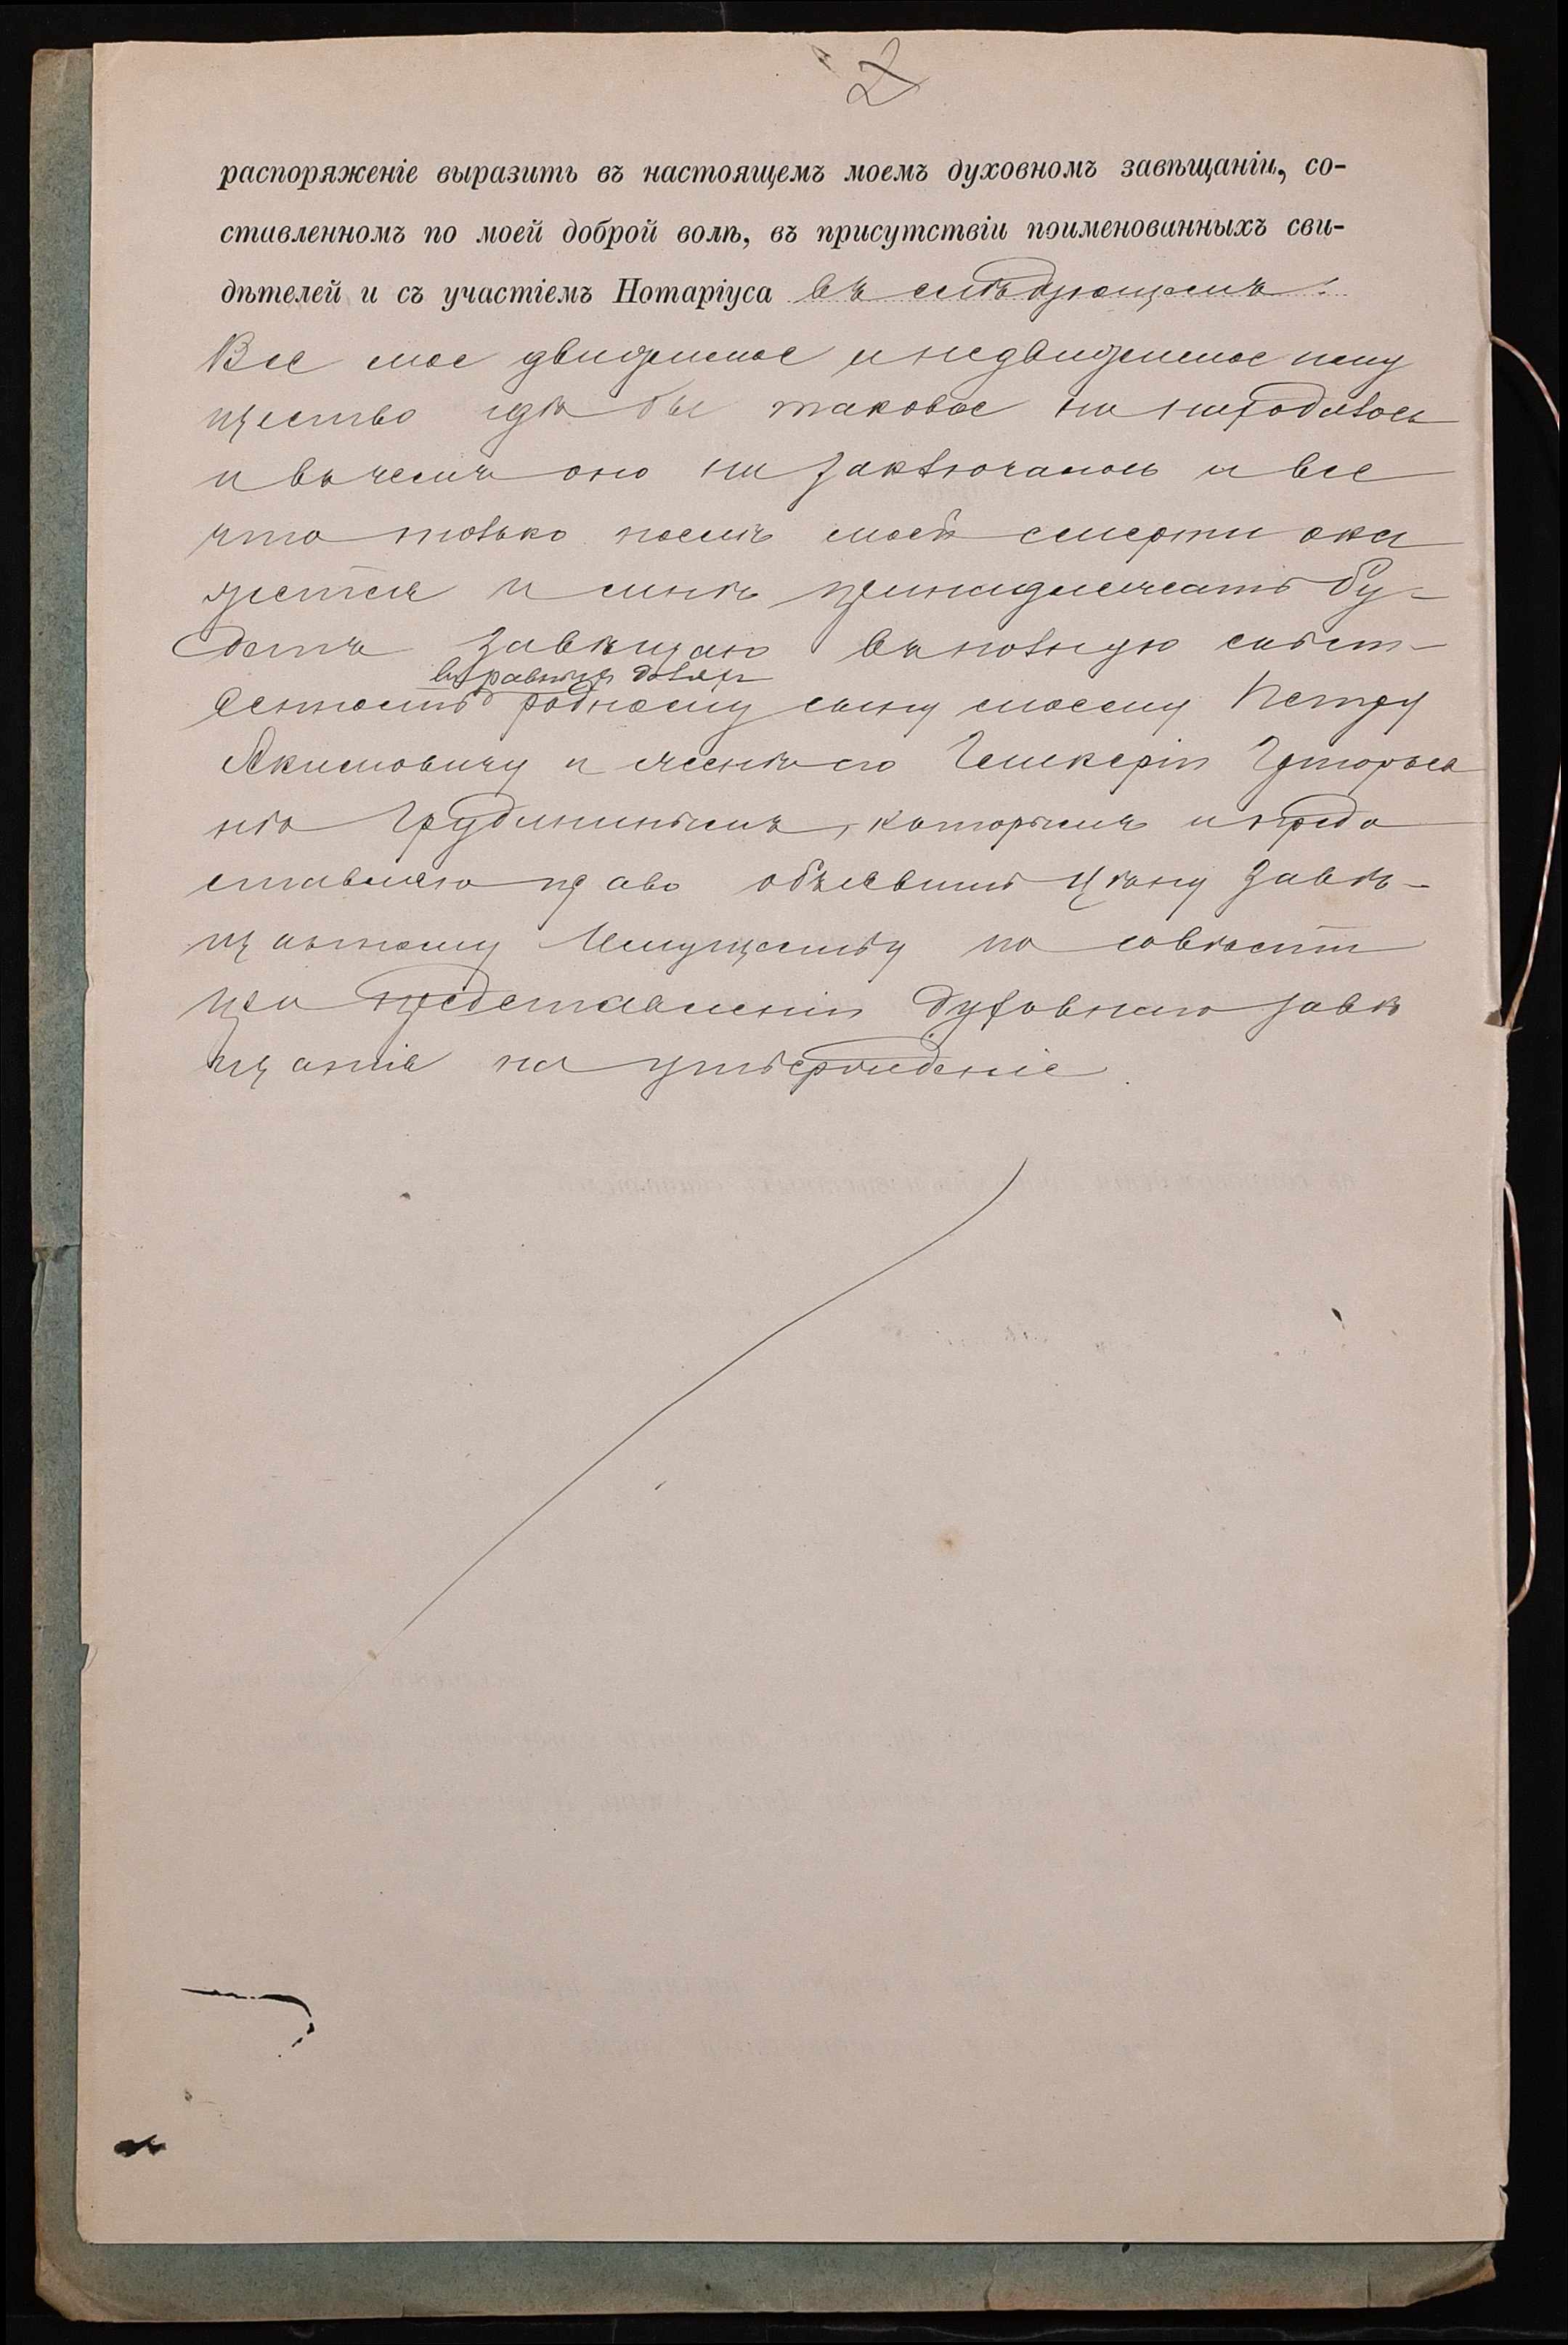 2
распоряженіе выразить въ настоящемъ моемъ духовномъ завѣщаніи, со-
ставленномъ по моей доброй волѣ, въ присутствіи поименованныхъ сви-
дѣтелей и съ участіемъ Нотаріуса въ слѣдующемъ:
Все мое движимое и недвижимое иму
щество гдѣ бы таковое ни находилось
и въ чемъ оно ни заключалось и все
что только послѣ моей смерти ока
жется и мнѣ принадлежать бу-
детъ завѣщаю въ полную собст-
въ равныхъ доляхъ
венность родному сыну моему Петру
Акимовичу и женѣ его Гликеріи
Грудининымъ, которымъ и предо
ставляю право объявить цѣну завѣ-
щанному имуществу по совѣсти
при представленіи духовнаго завѣ
щанія на утвержденіе.